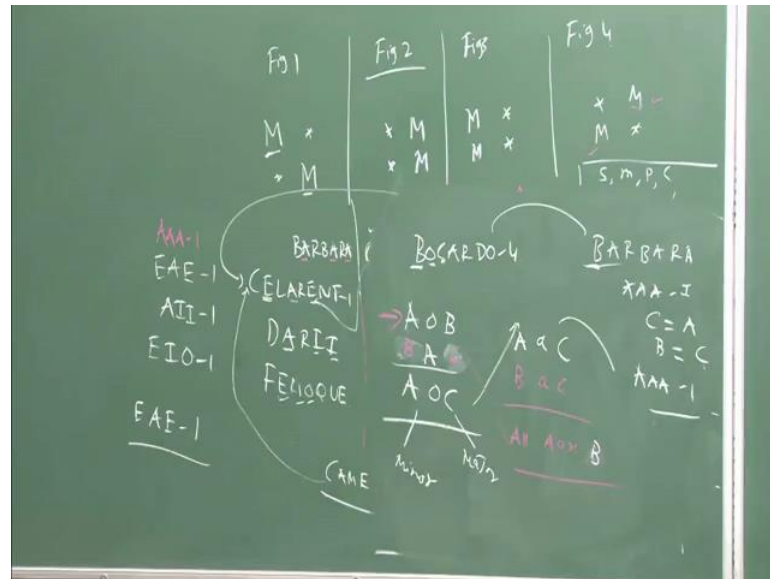 Fig 1
Fig 2
Fig 4
M *
* M
* M
* M
M *
M *
* M
M *
S, m, P, C,
AAA-1
EAE-1
AII-1
EIO-1
EAE-1
BARBARA
CELARENT-1
DARII
CAME
BOCARDO-4
A O B
B A
A O C
Minor
A a C
B a C
B
BARBARA
*AA-I
C = A
B = C
AAA-1